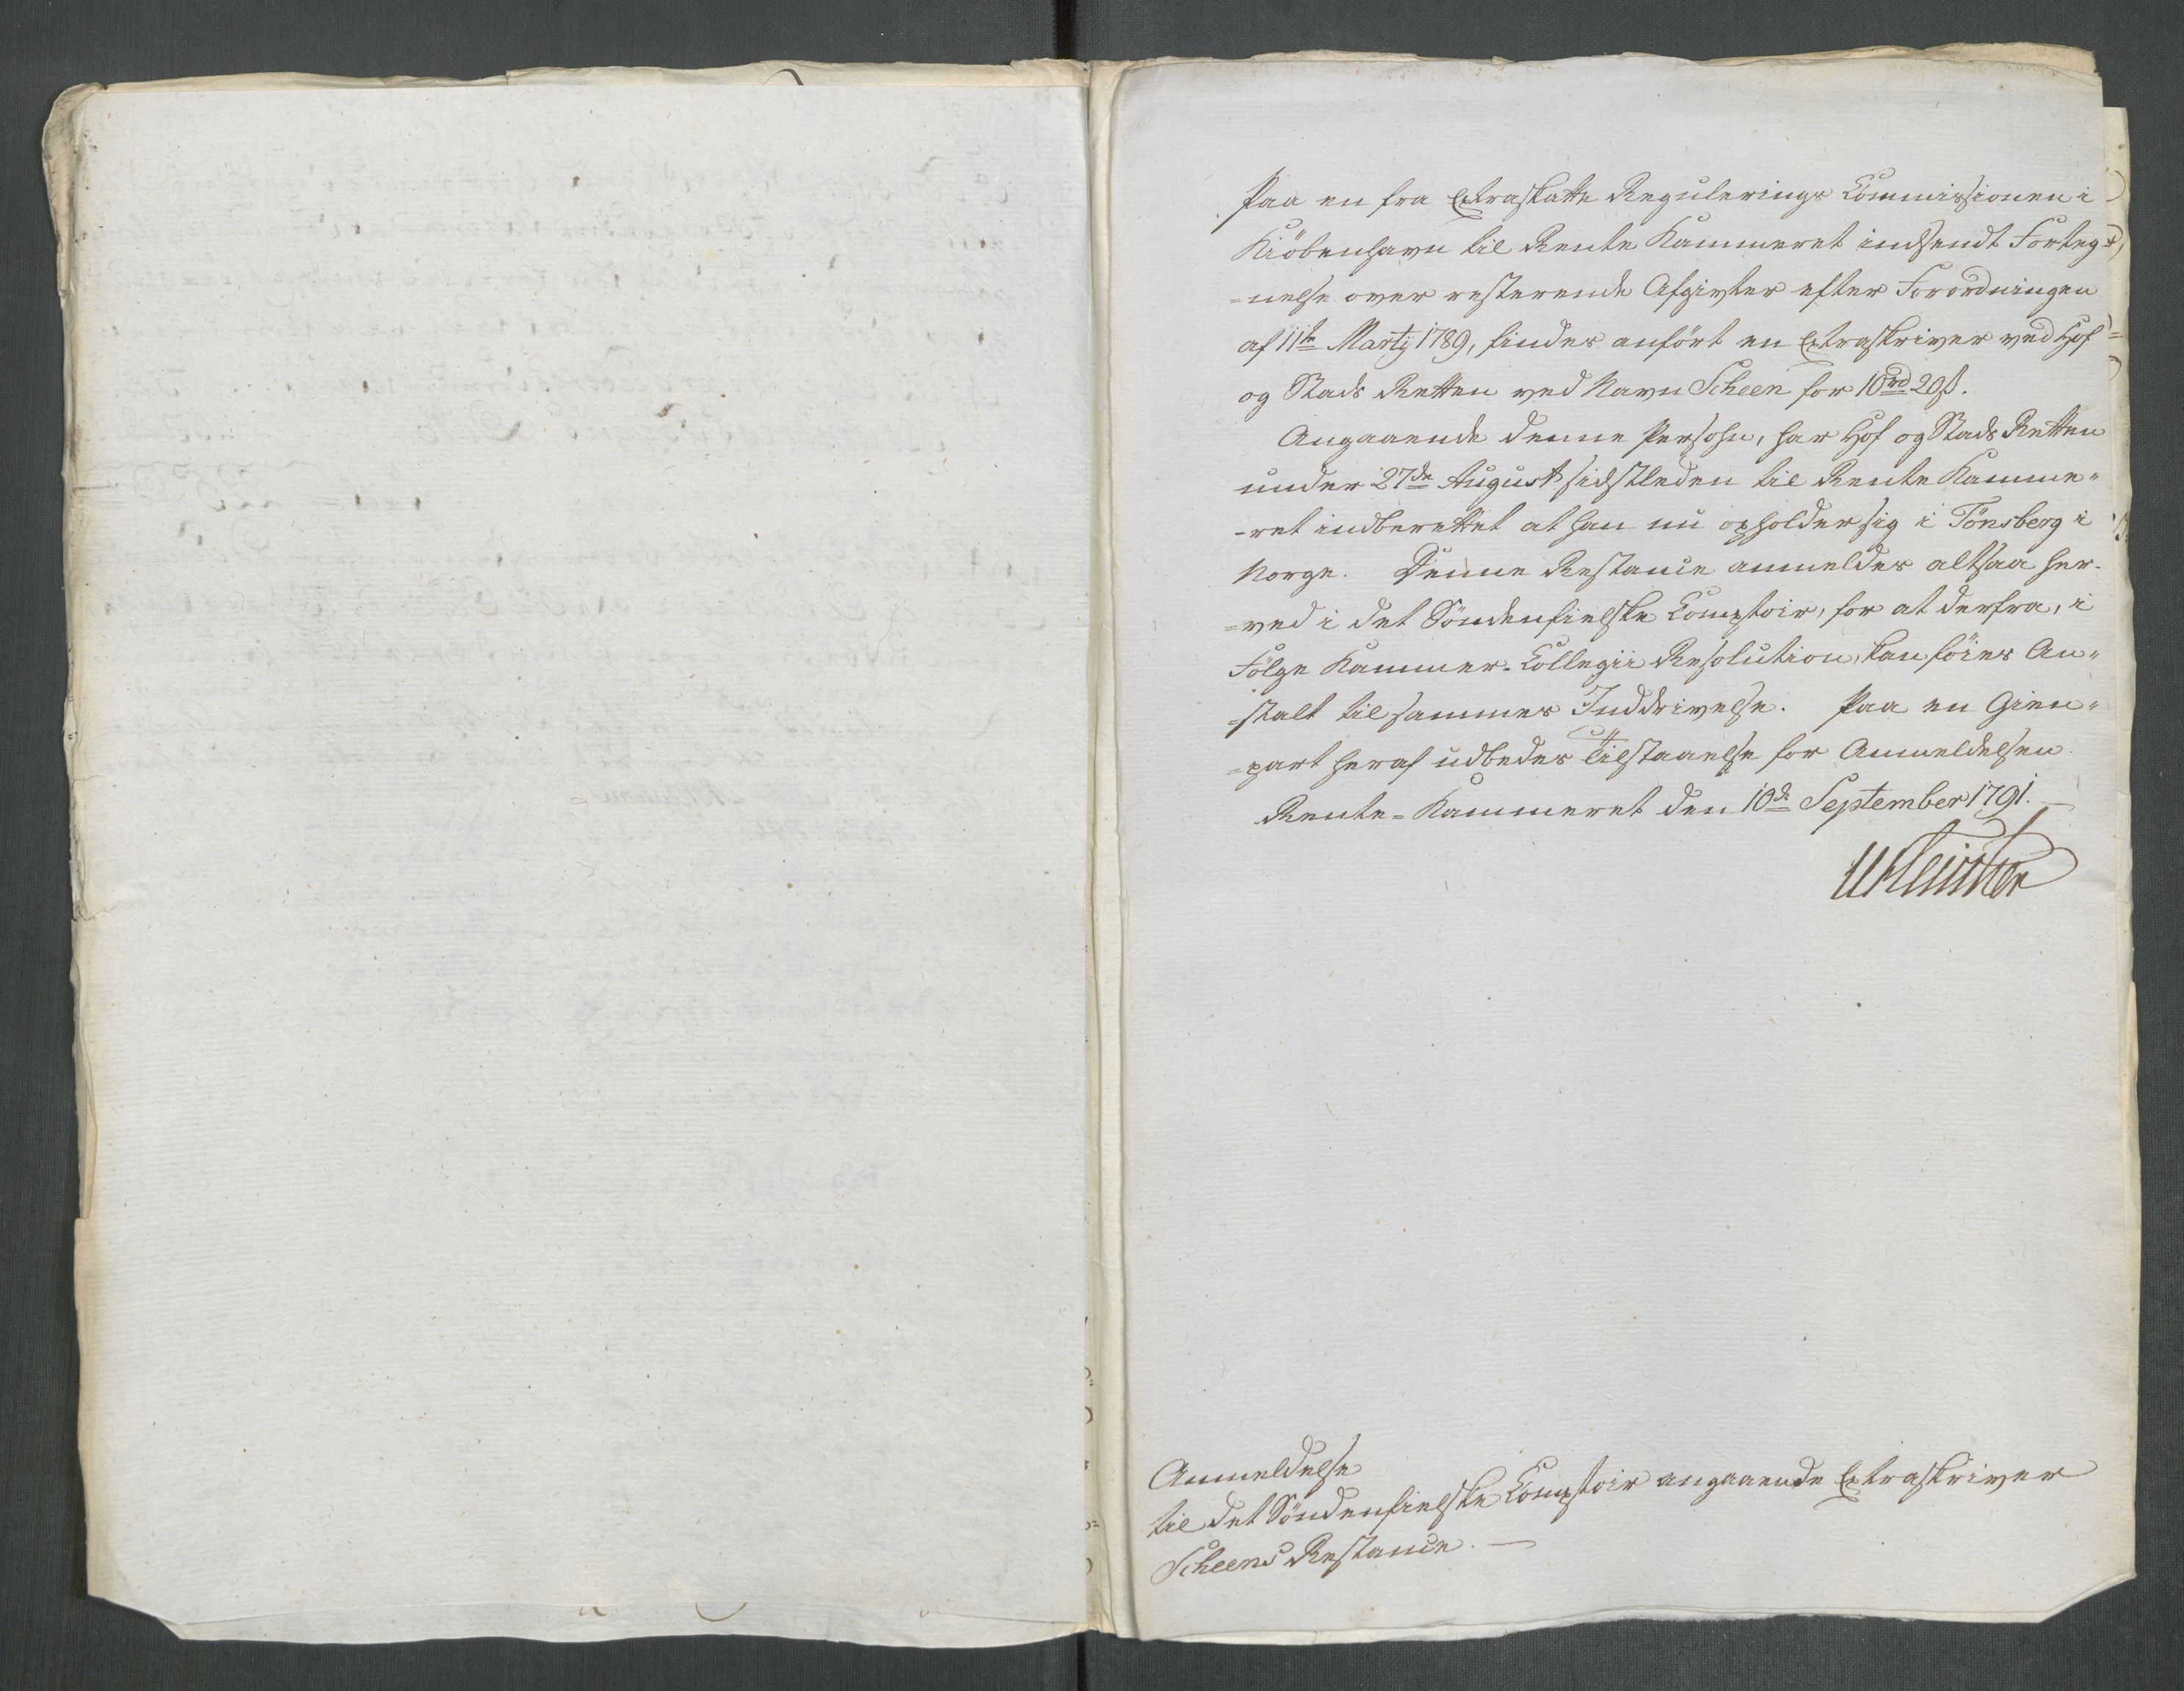 Paa en fra Extraskatte Regulerings Commissionen i
Kiöbenhavn til Rente Kammeret indsendt Forteg=
=nelse over resterende Afgivter efter Forordningen
af 11te Martij 1789, findes anfört en Extraskriver ved Hof
og Stads Retten ved Navn Scheen for 10rd 20ß.
Angaaende denne Persohn, har Hof og Stads Retten
under 27de August sidstleden til Rente Kamme=
-ret indberettet at han nu opholder sig i Tönsberg i
Norge. Denne Restance anmeldes altsaa her-
=ved i det Söndenfielske Comptoir, for at derfra, i
Fölge Kammer-Collegii Resolution, kan föies An=
=stalt til sammes Inddrivelse. Paa en Gien=
=part heraf udbedes Tilstaaelse for Anmeldelsen
Rente=Kammeret den 10de September 1791.
Anmeldelse
til det Söndenfielske Comptoir angaaende Extraskriver
Scheens Restance. —